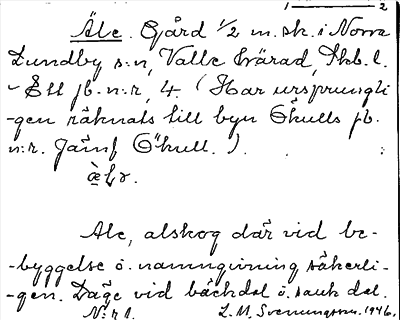 1 2
Äle. Gård 1/2 m.sk. i Norra
Lundby s:n, Valle härad, Skb. l.
- Ett jb. n:r, 4. (Har ursprungli-
-gen räknats till byn Ökulls jb.
n:r. Jämf Ökull.).
Ale, alskog där vid be-
-byggelse o. namngivning säkerli-
-gen. Läge vid bäckdal o. sank dal.
N:r 1. L. M. Svenungsson. 1946.